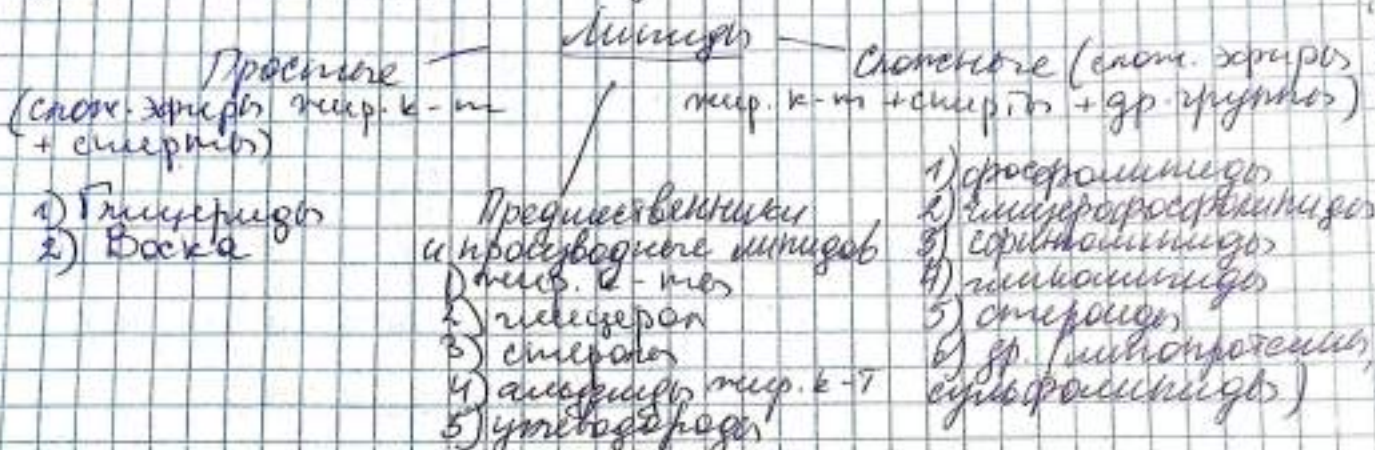 Липиды
Простые
(слож. эфиры жир. к-т
+ спирты)
1) Глицериды
2) Воска
Предшественники
и производные липидов
1) жир. к-ты
2) глицерол
3) стеролы
4) альдегиды жир. к-т
5) углеводороды
Сложные (слож. эфиры
жир. к-т + спирты + др. группы)
1) фосфолипиды
2) глицерофосфолипиды
3) сфинголипиды
4) гликолипиды
5) стероиды
6) др. (липопротеины,
сульфолипиды)